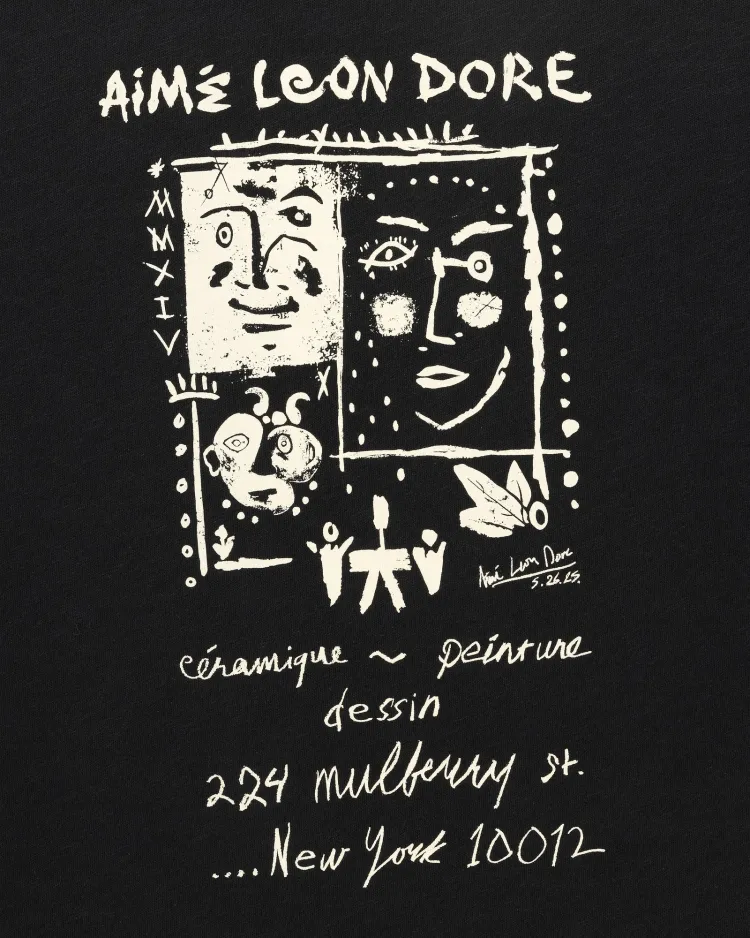 AiMÉ LEON DORE
MMXIV
Aimé Leon Dore
5.26.25.
céramique ~ peinture
dessin
224 mulberry st.
....New York 10012